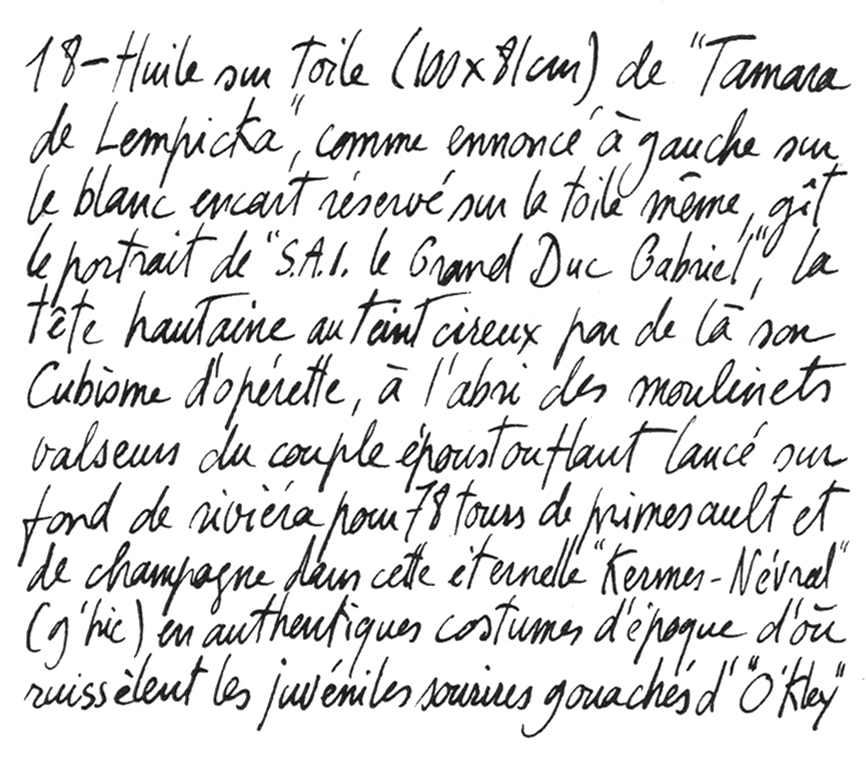 18-Huile sur toile (100x81cm) de "Tamara
de Lempicka", comme ennoncé à gauche sur
le blanc encart réservé sur la toile même, gît
le portrait de "S.A.I. le Grand Duc Gabriel", la
tête hautaine au teint cireux par de là son
Cubisme d'opérette, à l'abri des moulinets
valseurs du couple époustouflant lancé sur
fond de rivièra pour 78 tours de primesault et
de champagne dans cette éternelle "Kermes-Névral"
(g'hic) en authentiques costumes d'époque d'où
ruissèlent les juvéniles sourires gouachés d' "O'Kley"